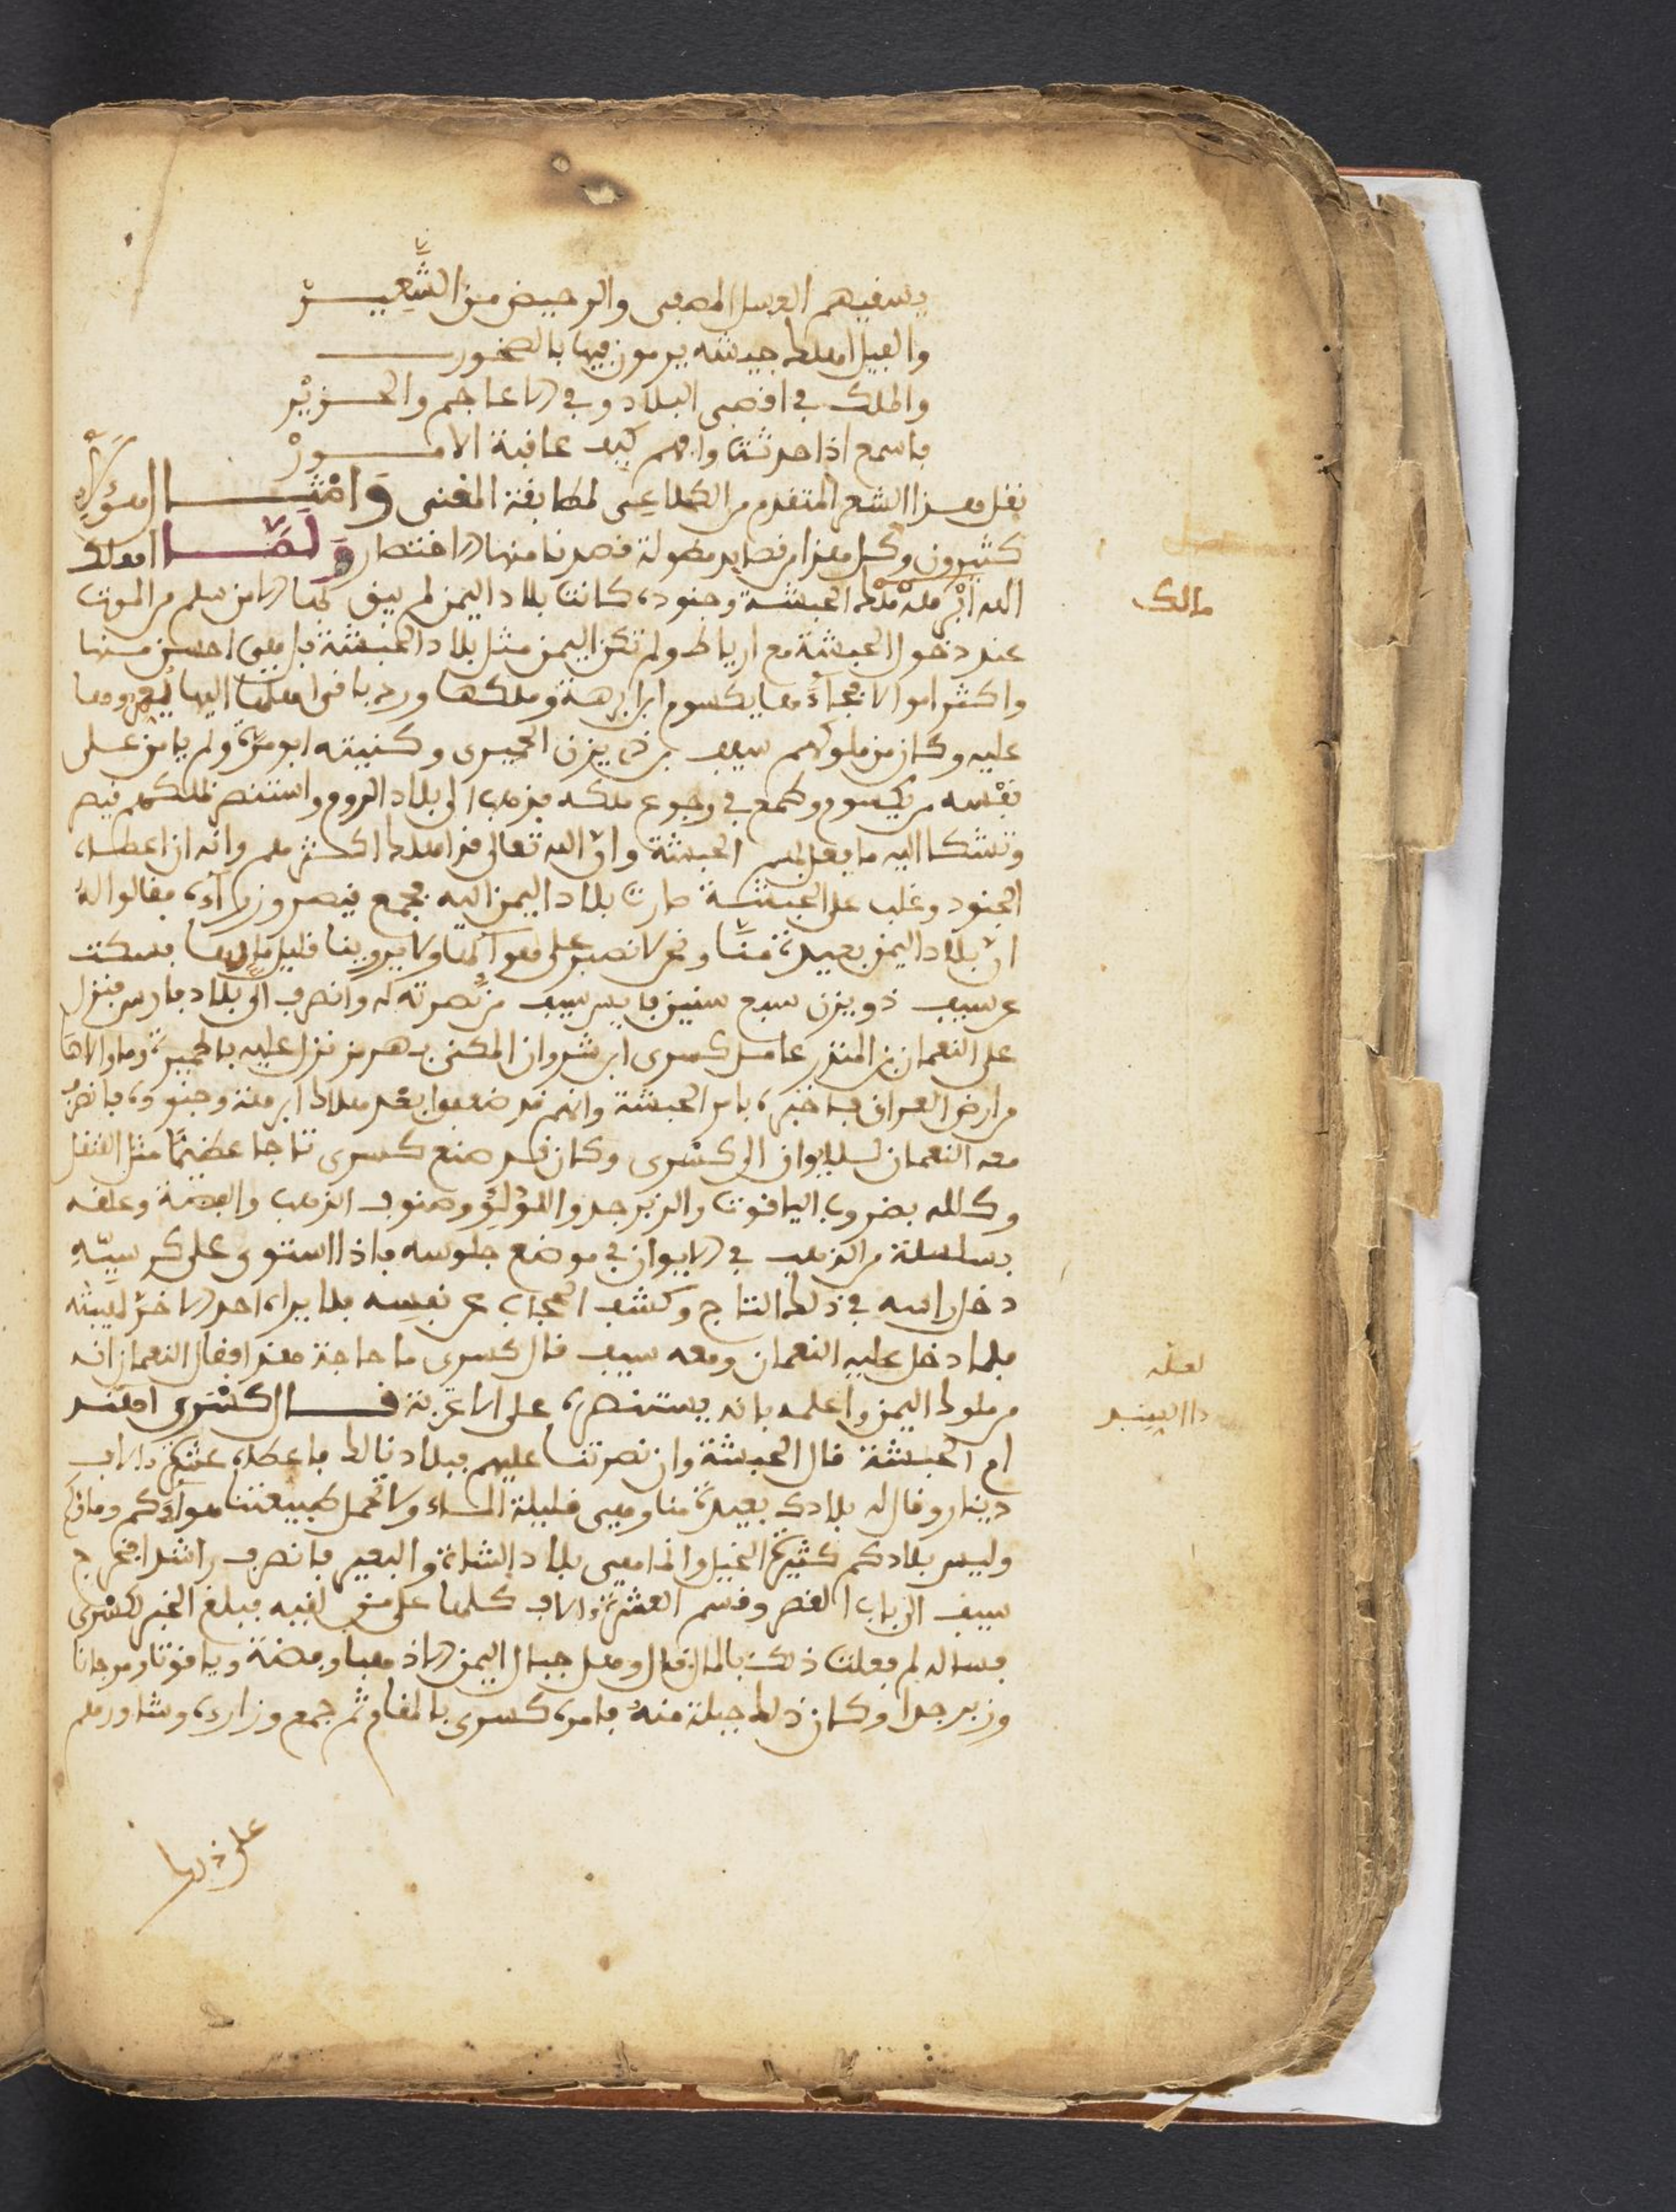 يسقيهم العسل المصفى والرحيض من الشعير
والفيل اهلك جيشه يرمون فيها بالصخور
والملك في اقصى البلاد وفي الاعاجم والخزير
فاسمع اذا حدثت وافهم كيف عاقبة الامور
نقل هذا الشعر المتقدم من الكلاعى لمطابقة المعنى وامثال هؤلاء
كثيرون وكل هذا من قصايد مطولة قصدنا منها الاختصار ولما اهلك
الله ابرهة ملك الحبشة وجنوده كانت بلاد اليمن لم يبق بها الا من سلم من الموت
عند دخول الحبشة مع ارياط ولم تكن اليمن مثل بلاد الحبشة بل هي احسن منها
واكثر اموالا فجاءها يكسوم ابن ابرهة وملكها ورد باقى اهلها اليها
عليه وكان من ملوكهم سيف بن ذى يزن الحميرى وكنيته ابو مرة ولم يامن على
نفسه من يكسوم وطمع في رجوع ملكه فذهب الى بلاد الروم واستنصر بملكهم قيصر
وتشكا اليه ما يفعل بهم الحبشة وان الله تعالى قد اهلك اكثرهم وانه ان اعطاه
الجنود وغلب على الحبشة صارت بلاد اليمن اليه فجمع قيصر وزراءه فقالوا له
ان بلاد اليمن بعيدة منا ونحن لا نصبر على هوائها ولا يروينا قليل مائها فسكت
عن سيف ذو يزن سبع سنين فايس سيف من نصرته له وانصرف الى بلاد فارس فنزل
على النعمان بن المنذر عامل كسرى انوشروان المكنى بهرمز نزل عليه بالحيرة وما والاها
من ارض العراق فاخبره بامر الحبشة وانهم قد ضعفوا بعد هلاك ابرهة وجنوده فانصرف
معه النعمان لسلايوان الى كسرى وكان قد صنع كسرى تاجا عظيما مثل القنقل
وكلله بضروب الياقوت والزبرجد واللؤلؤ وصنوف الذهب والفضة وعلقه
بسلسلة من الذهب في الايوان في موضع جلوسه فاذا استوى على كرسيه
دخل راسه في ذلك التاج وكشف الحجاب عن نفسه فلا يراه احد الا خر لهيبته
فلما دخل عليه النعمان ومعه سيف قال كسرى ما حاجة هذا فقال النعمان انه
من ملوك اليمن واعلمه بانه يستنصره على الاغربة قال كسرى الهند
ام الحبشة قال الحبشة وان نصرتنا عليهم فبلادنا لك فاعطاه عشرة الاف
دينار وقال له بلادك بعيدة منا وهي قليلة الماء ولا تحمل طبيعتنا هواءكم وماءكم
وليس بلادكم كثيرة الخيل وانما هي بلاد الشاة والبعير فانصرف راشدا فخرج
سيف الى باب القصر وقسم العشرة الاف كلها على من لقيه فبلغ الخبر لكسرى
فساله لم فعلت ذلك بالمال قال وهل جبال اليمن الا ذهبا وفضة وياقوتا ومرجانا
وزبرجدا وكان ذلك حيلة منه فامره كسرى بالمقام ثم جمع وزاراءه وشاورهم
على ذلك
مالك
لعله
االهند